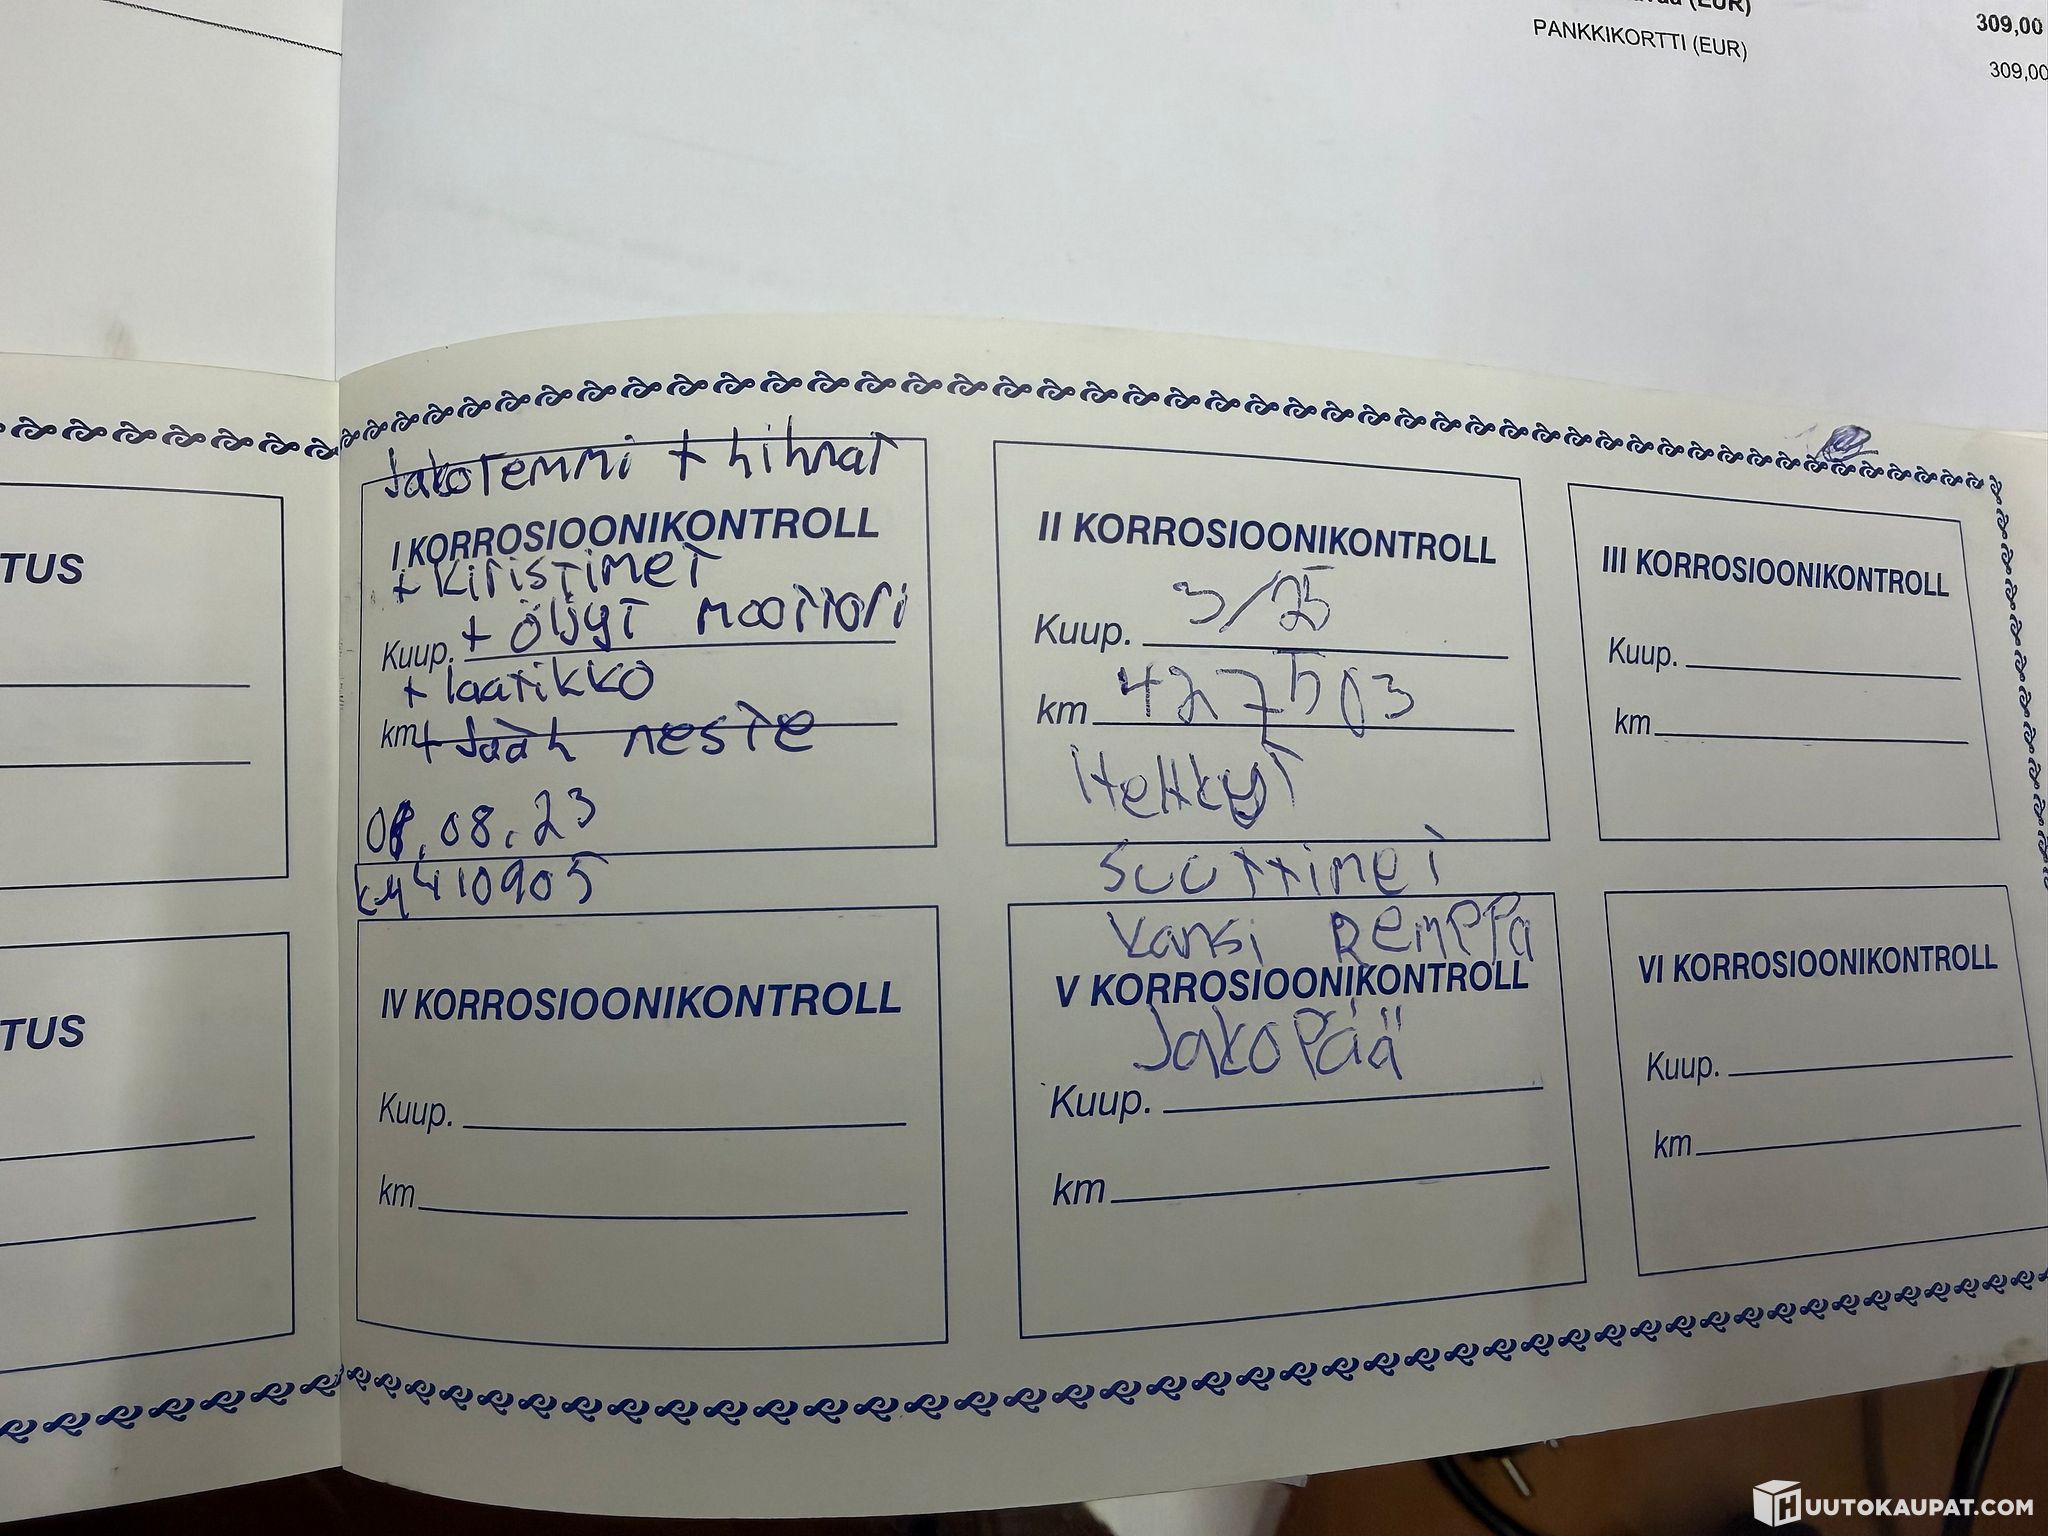 (EUR)
309,00
PANKKIKORTTI (EUR)
309,00
TUS
TUS
Jakoremmi + hihnat
I KORROSIOONIKONTROLL
+ kiristimet
+ öljyt moottori
Kuup.
+ laatikko
km
+ Jääh neste
08.08.23
km 410905
II KORROSIOONIKONTROLL
Kuup. 3/25
km 427503
Hehkyt
Suuttimet
Kansi Remppa
III KORROSIOONIKONTROLL
Kuup.
km
IV KORROSIOONIKONTROLL
Kuup.
km
V KORROSIOONIKONTROLL
JakoPää
Kuup.
km
VI KORROSIOONIKONTROLL
Kuup.
km
HUUTOKAUPAT.COM